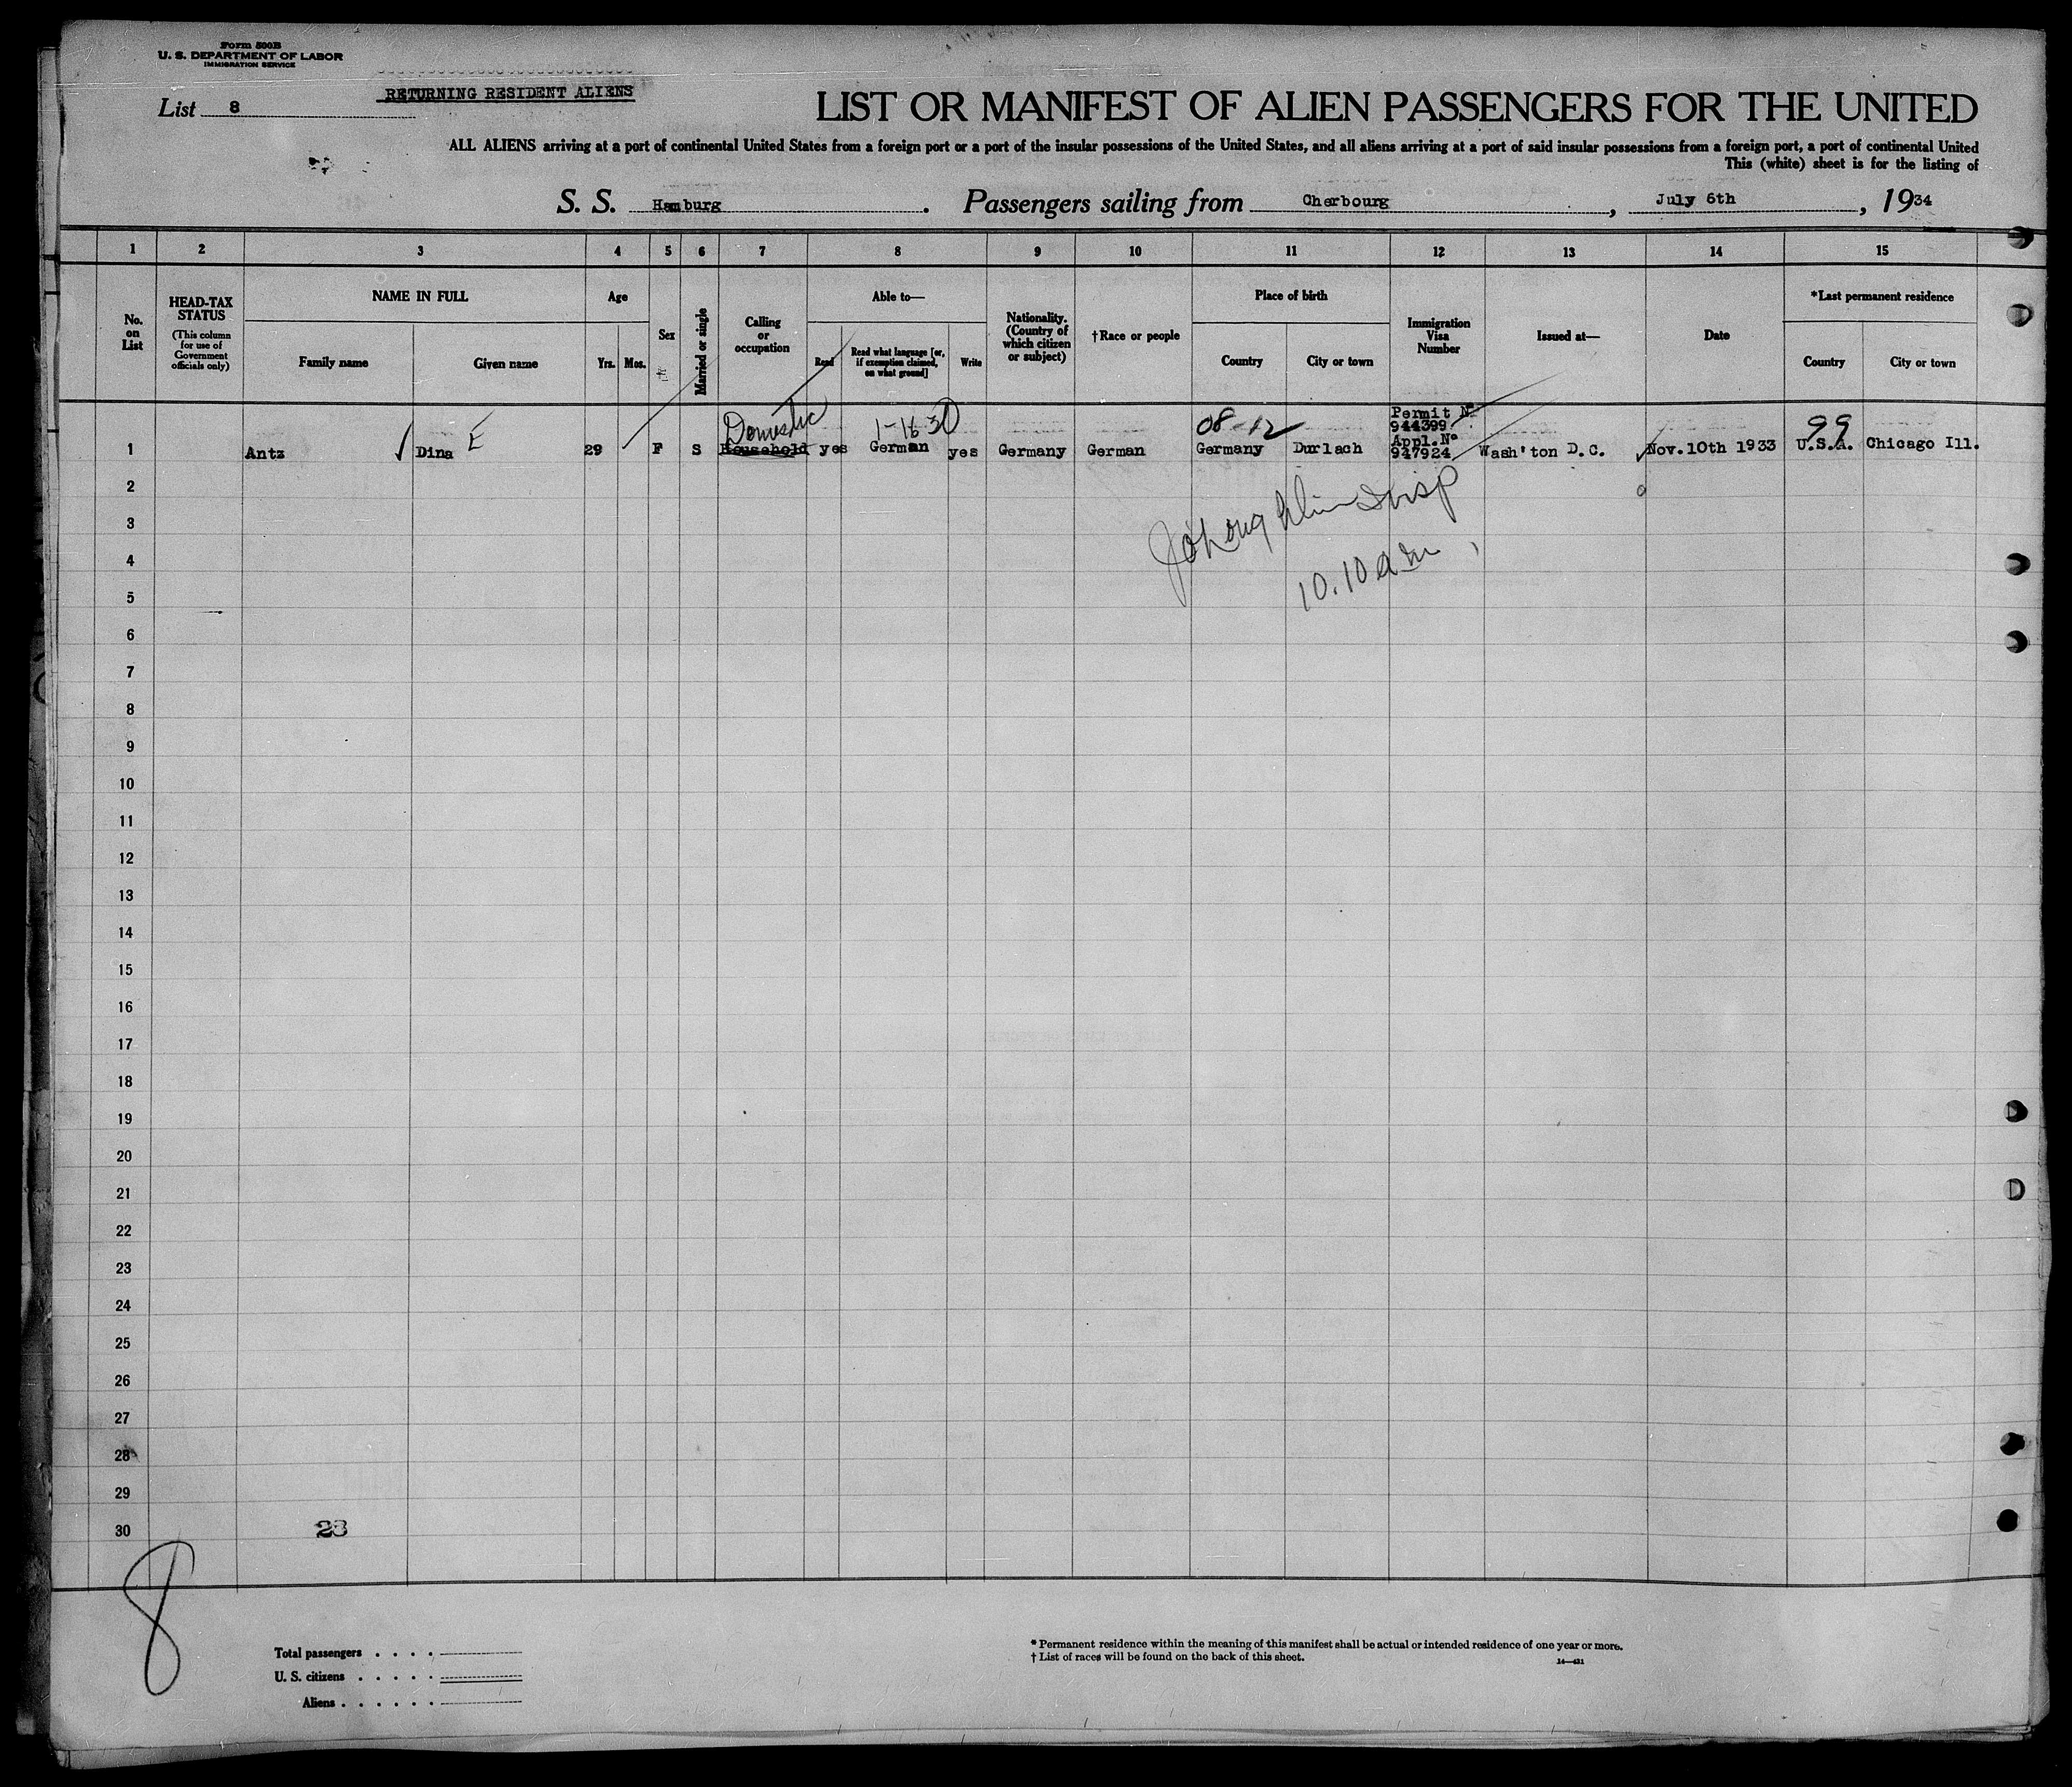 Form 500B
U. S. DEPARTMENT OF LABOR
IMMIGRATION SERVICE
List 8
RETURNING RESIDENT ALIENS
LIST OR MANIFEST OF ALIEN PASSENGERS FOR THE UNITED
ALL ALIENS arriving at a port of continental United States from a foreign port or a port of the insular possessions of the United States, and all aliens arriving at a port of said insular possessions from a foreign port, a port of continental United
This (white) sheet is for the listing of
S. S. Hamburg. Passengers sailing from Cherbourg, July 6th, 1934
1 2 3 4 5 6 7 8 9 10 11 12 13 14 15
No. on List
HEAD-TAX STATUS
(This column for use of Government officials only)
NAME IN FULL
Family name
Given name
Age
Yrs. Mos.
Sex
Married or single
Calling or occupation
Able to—
Read
Read what language [or, if exemption claimed, on what ground]
Write
Nationality. (Country of which citizen or subject)
†Race or people
Place of birth
Country
City or town
Immigration Visa Number
Issued at—
Date
*Last permanent residence
Country
City or town
Domestic
1-16 30
08-12
Permit No
944399
Appl. No
99
1 Antz Dina E 29 F S Household yes German yes Germany German Germany Durlach 947924 Wash'ton D.C. Nov.10th 1933 U.S.A. Chicago Ill.
2
3
4
10.10 am
5
6
7
8
9
10
11
12
13
14
15
16
17
18
19
20
21
22
23
24
25
26
27
28
29
30
23
8
Total passengers . . . .
U. S. citizens . . . . .
Aliens . . . . . .
* Permanent residence within the meaning of this manifest shall be actual or intended residence of one year or more.
† List of races will be found on the back of this sheet.
14—431